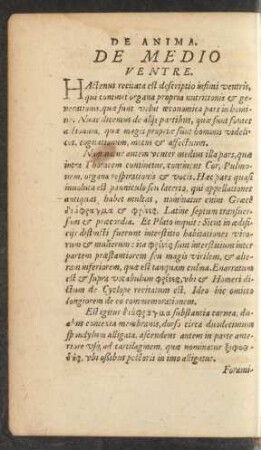 DE ANIMA.
DE MEDIO
VENTRE.
HActenus recitata est descriptio infimi ventris,
qui continet organa propria nutritionis & ge
nerationis, quæ sunt velut œconomica pars in homi
ne. Nunc dicemus de alijs partibus, quæ sunt fontes
actionum, quæ magis propriæ sunt hominis videli-
cet, cogitationum, motuum & affectuum.
Nominatur autem venter medius illa pars, quæ
intra Thoracem continetur, continens Cor, Pulmo-
nem, organa respirationis & vocis. Hæc pars quasi
inuoluta est panniculo seu laterna, qui appellationes
antiquas habet multas, nominatur enim Græcè
διάφραγμα & φρένες. Latini septum transuer-
sum & præcordia. Et Plato inquit: Sicut in ædifi-
cijs distincti fuerunt interstitio habitationes viro-
rum & mulierum: ita φρένες sunt interstitium inter
partem præstantiorem seu magis virilem, & alte-
ram inferiorem, quæ est tanquam culina. Enarratum
est & supra vocabulum φρένες, vbi & Homeri di-
ctum de Cyclope recitatum est. Ideo hic omitto
longiorem de eo commemorationem.
Est igitur διάφραγμα substantia carnea, du-
abus contexta membranis, dorso circa duodecimum
spondylum alligata, ascendens autem in parte ante-
riore vsque ad cartilaginem, quæ nominatur ξιφοει-
δὴς, vbi ossibus pectoris in imo alligatur.
Forami-